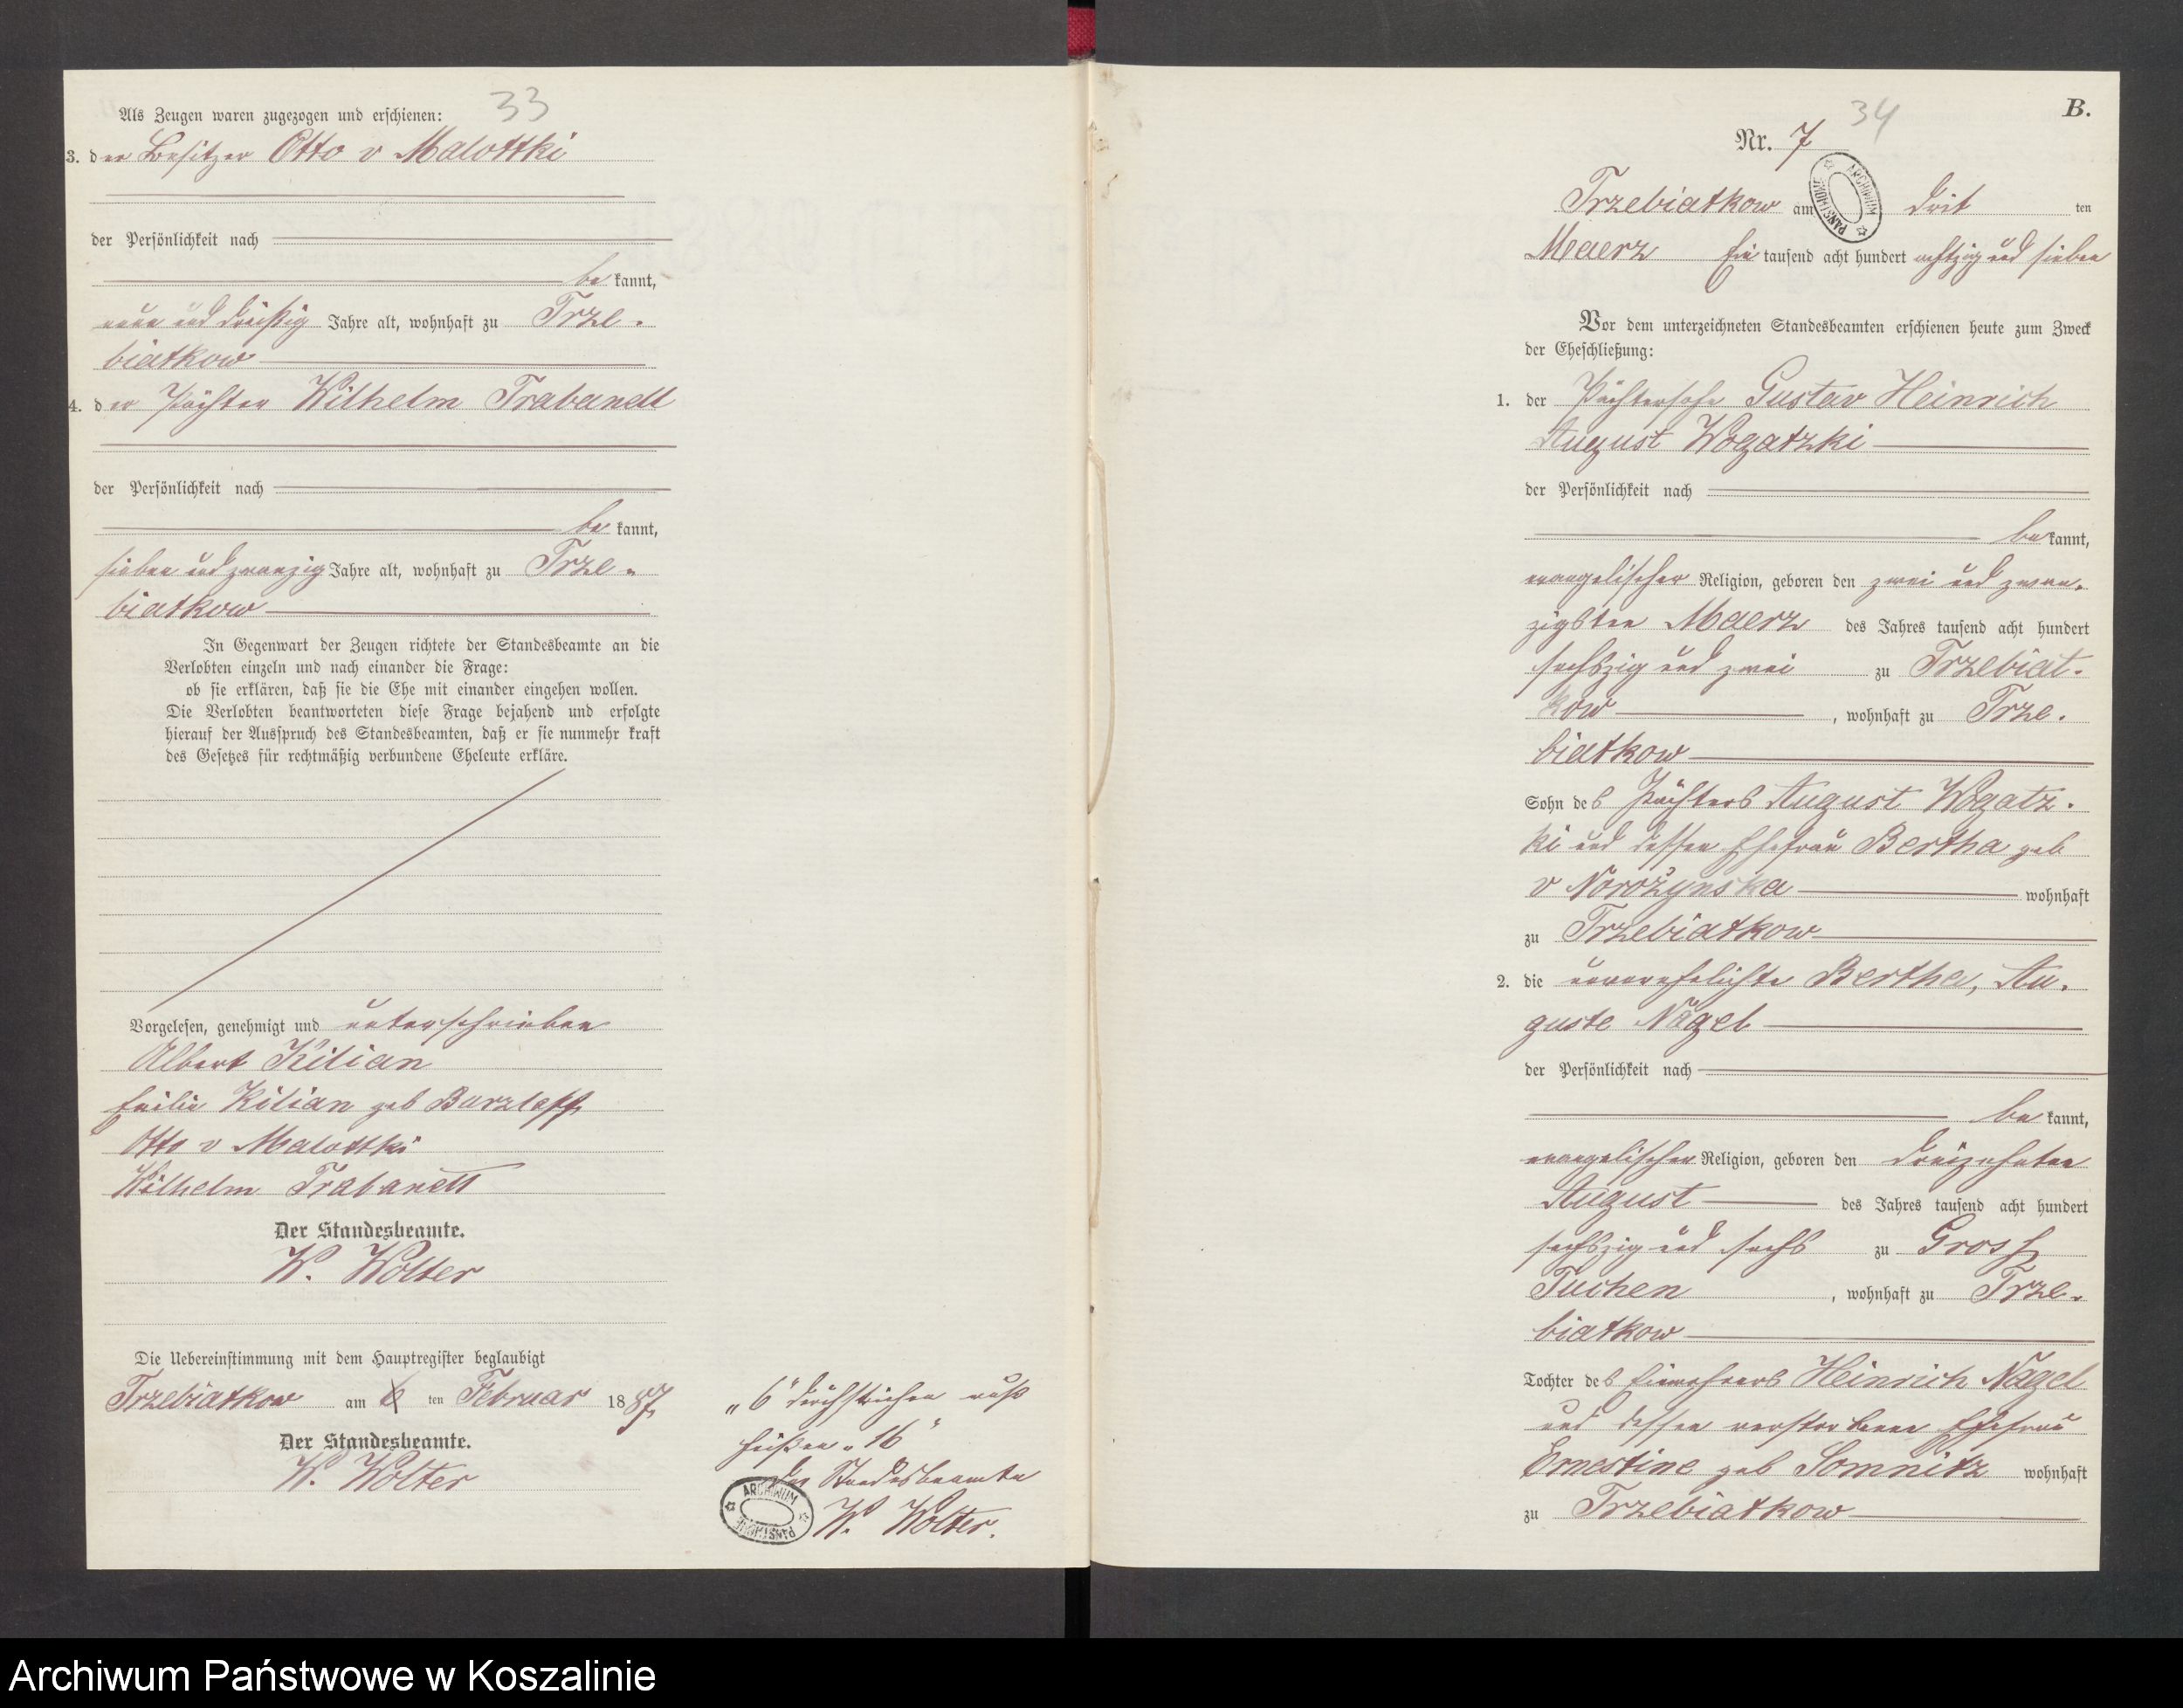 33
Als Zeugen waren zugezogen und erschienen:
3. der Besitzer Otto v Malottki
der Persönlichkeit nach
be kannt,
neun und dreißig Jahre alt, wohnhaft zu Trze-
biatkow
4. der Pächter Wilhelm Trabandt
der Persönlichkeit nach
be kannt,
sieben und zwanzig Jahre alt, wohnhaft zu Trze-
biatkow
In Gegenwart der Zeugen richtete der Standesbeamte an die
Verlobten einzeln und nach einander die Frage:
ob sie erklären, daß sie die Ehe mit einander eingehen wollen.
Die Verlobten beantworteten diese Frage bejahend und erfolgte
hierauf der Ausspruch des Standesbeamten, daß er sie nunmehr kraft
des Gesetzes für rechtmäßig verbundene Eheleute erkläre.
Vorgelesen, genehmigt und unterschrieben
Albert Kilian
Kilian geb
Otto v Malottki
Wilhelm Trabandt
Der Standesbeamte.
W. Wolter
Die Uebereinstimmung mit dem Hauptregister beglaubigt
Trzebiatkow am 6 ten Februar 1887
Der Standesbeamte.
W. Wolter
„6" durchstrichen muß
heißen „16"
Der Standesbeamte
W. Wolter.
ARCHIWUM PAŃSTWOWE
B.
34
Nr. 7
ARCHIWUM PAŃSTWOWE
Trzebiatkow am drit ten
Maerz Ein tausend acht hundert achtzig und sieben
Vor dem unterzeichneten Standesbeamten erschienen heute zum Zweck
der Eheschließung:
1. der Pächtersohn Gustav Heinrich
August Wogatzki
der Persönlichkeit nach
be kannt,
evangelischer Religion, geboren den zwei und zwan-
zigsten Maerz des Jahres tausend acht hundert
sechszig und zwei zu Trzebiat-
kow, wohnhaft zu Trze-
biatkow
Sohn des Pächters August Wogatz-
ki und dessen Ehefrau Bertha geb
v
wohnhaft
zu Trzebiatkow
2. die unverehelichte Bertha, Au-
guste Nagel
der Persönlichkeit nach
be kannt,
evangelischer Religion, geboren den dreizehnten
August des Jahres tausend acht hundert
sechszig und sechs zu Gross
Tuchen, wohnhaft zu Trze-
biatkow
Tochter des Einwohners Heinrich Nagel
und dessen verstorbene Ehefrau
Ernestine geb Somnitz wohnhaft
zu Trzebiatkow
Archiwum Państwowe w Koszalinie